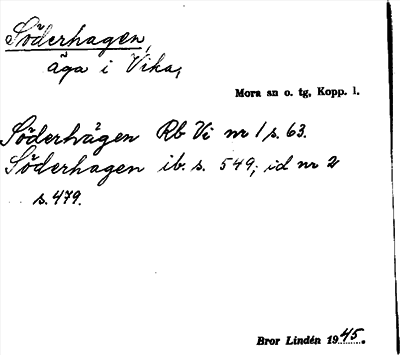 Söderhagen,
äga i Vika,
Mora sn o. tg, Kopp. l.
Söderhägen Rb Vi nr 1 s. 63.
Söderhagen ib. s. 549; id nr 2
s. 479.
Bror Lindén 1945.